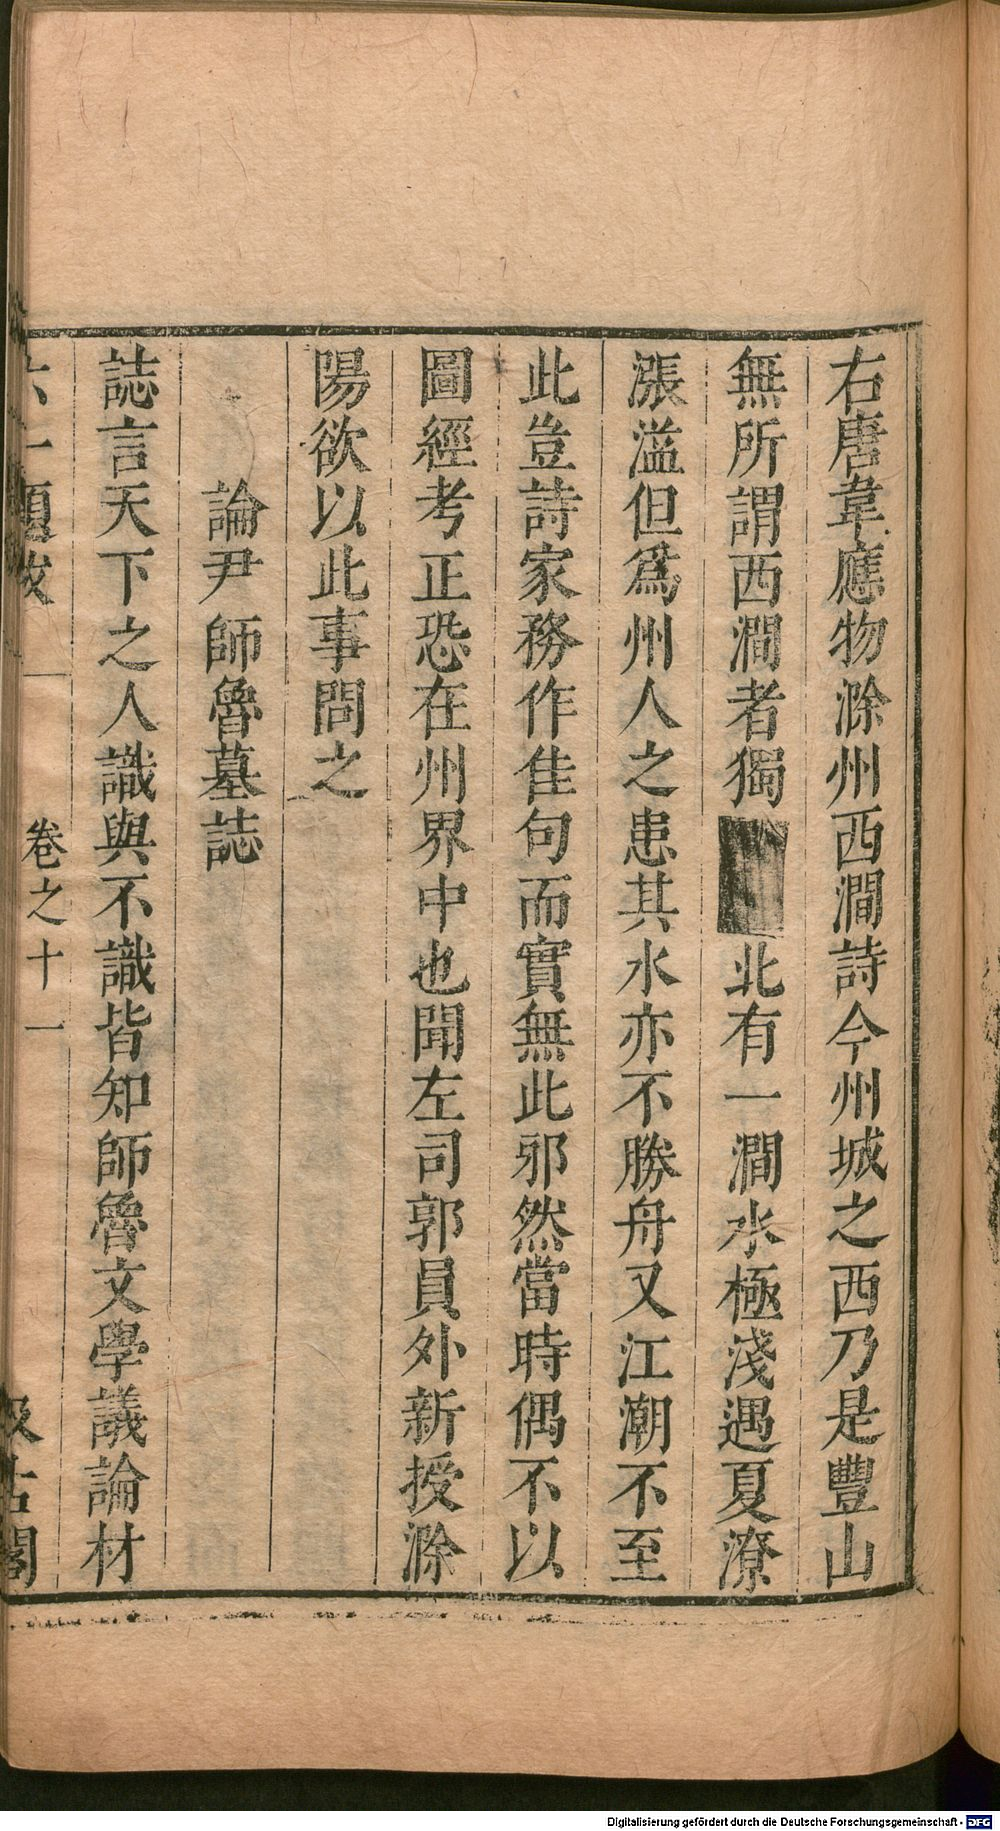 右唐韋應物滁州西澗詩今州城之西乃是豐山
無所謂西澗者獨北有一澗水極淺遇夏潦
漲溢但爲州人之患其水亦不勝舟又江潮不至
此豈詩家務作佳句而實無此邪然當時偶不以
圖經考正恐在州界中也聞左司郭員外新授滁
陽欲以此事問之
論尹師魯墓誌
誌言天下之人識與不識皆知師魯文學議論材
六一題跋 卷之十一 汲古閣
Digitalisierung gefördert durch die Deutsche Forschungsgemeinschaft - DFG